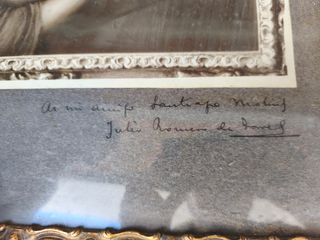 A mi amigo Santiago
Julio Romero de Torres